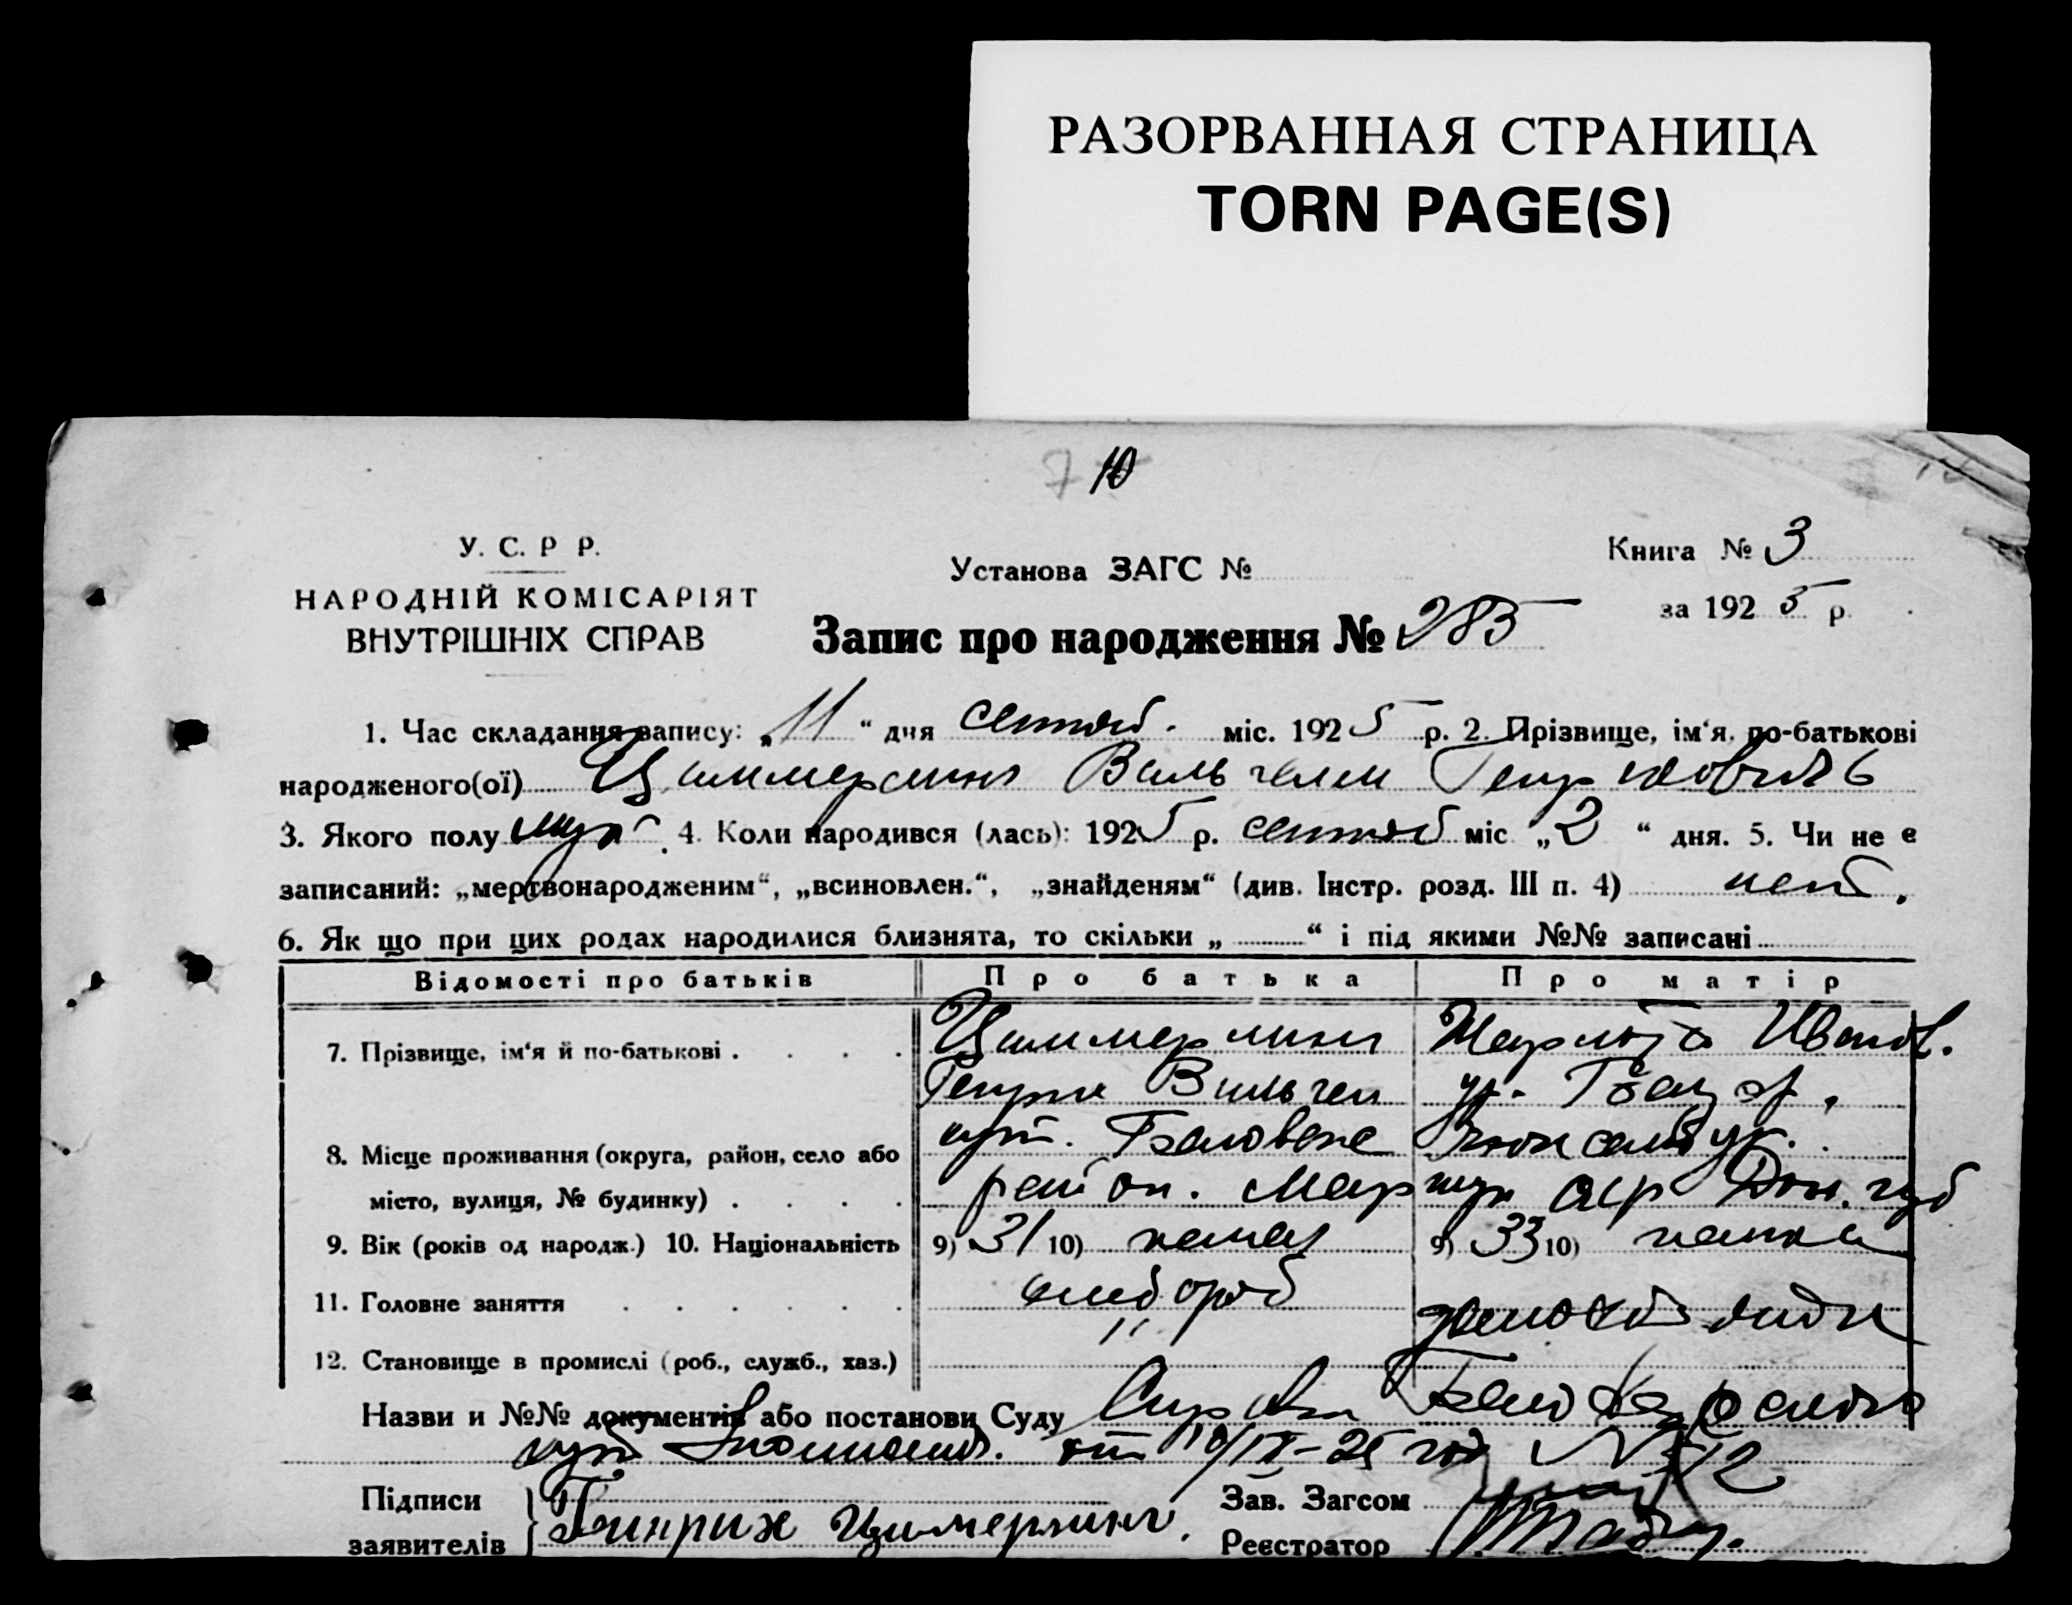 РАЗОРВАННАЯ СТРАНИЦА
TORN PAGE(S)
7 10
У. С. Р Р.
НАРОДНІЙ КОМІСАРІЯТ
ВНУТРІШНІХ СПРАВ
Установа ЗАГС №
Книга № 3
за 192 5 р.
Запис про народження № 285
1. Час складання запису: „ 11 “ дня сентяб. міс. 192 5 р. 2. Прізвище, ім‘я, по-батькові
народженого(ої) Циммерлинг Вильгелм Генрихович
3. Якого полу муж 4. Коли народився (лась): 192 5 р. сентяб міс „ 2 “ дня. 5. Чи не є
записаний: „мертвонародженим“, „всиновлен.“, „знайденям“ (див. Інстр. розд. III п. 4) нет.
6. Як що при цих родах народилися близнята, то скільки „ “ і під якими №№ записані
Відомості про батьків Про батька Про матір
7. Прізвище, ім‘я й по-батькові . . . . Циммерлинг Иванов.
Генрих Вильгел ур.
8. Місце проживання (округа, район, село або
місто, вулиця, № будинку) . . . . район. Мар окр Дон. губ
9. Вік (років од народж.) 10. Національність 9) 31 10) немец 9) 33 10) немка
11. Головне заняття . . . . . . хлебороб домохоз
12. Становище в промислі (роб., служб., хаз.) "
Назви и №№ документів або постанови Суду Справка
от 10/IX-25 год №
Підписи
заявителів Генрих Цимерлинг.
Зав. Загсом
Реєстратор